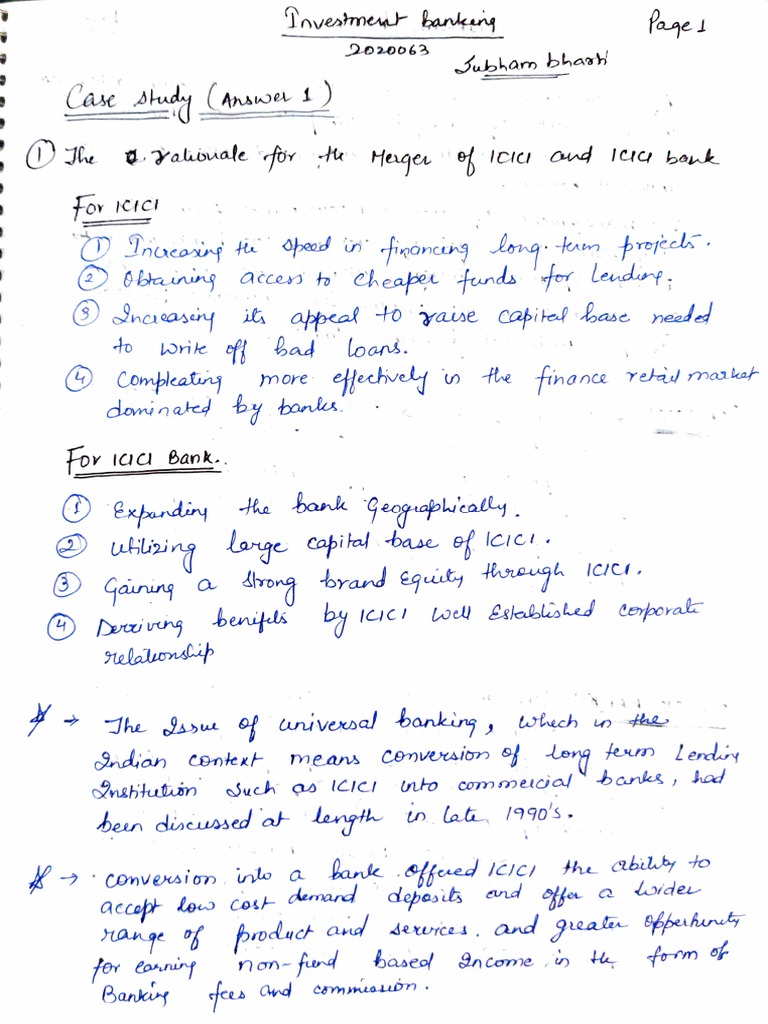 Investment banking
Page 1
2020063
Subham bharti
Case study (Answer 1)
① The rationale for the Merger of ICICI and ICICI bank
For ICICI
① Increasing the speed in financing long term projects.
② Obtaining access to cheaper funds for Lending.
③ Increasing its appeal to raise capital base needed
to write off bad loans.
④ Compleating more effectively in the finance retail market
dominated by banks.
For ICICI Bank..
① Expanding the bank Geographically.
② Utilizing large capital base of ICICI.
③ Gaining a strong brand Equity through ICICI.
④ Derriving benifits by ICICI well Established corporate
relationship
→ The Issue of universal banking, which in the
Indian context means conversion of long term Lending
Institution such as ICICI into commercial banks, had
been discussed at length in late 1990's.
→ conversion into a bank offered ICICI the ability to
accept low cost demand deposits and offer a wider
range of product and services. and greater opportunity
for earning non-fund based Income in the form of
Banking fees and commission.